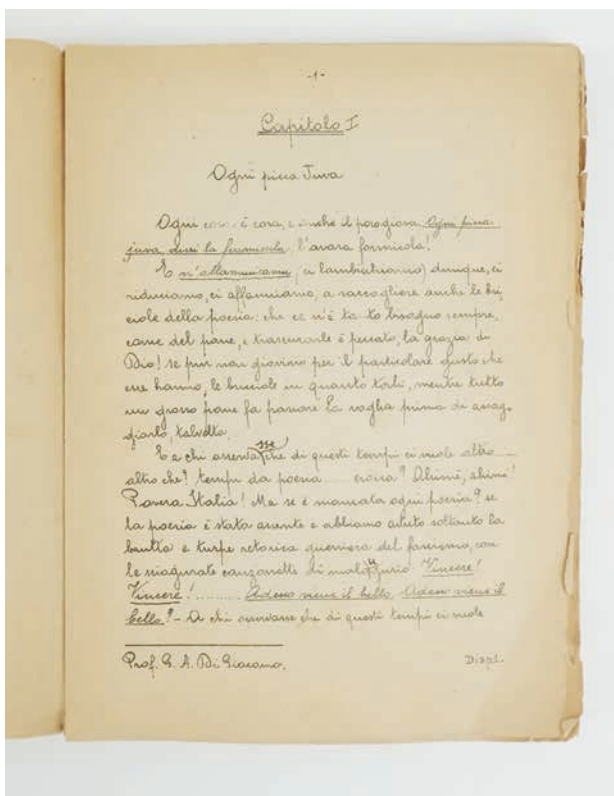 -1-
Capitolo I
Ogni picca Juva
Ogni cosa è cosa, e anche il poco giova. Ogni picca
juva, dici la furmicula, l'avara formicola!
E n'allammicamu, ci lambicchiamo, dunque, ci
riduciamo, ci affanniamo, a raccogliere anche le bri-
ciole della poesia: che ce n'è tanto bisogno sempre,
come del pane, e trascurarle è peccato, la grazia di
Dio! se pur non giovino per il particolare gusto che
esse hanno, le bricciole in quanto tali, mentre tutto
un grosso pane fa passare la voglia prima di assag-
giarlo, talvolta.
E a chi osservasse che di questi tempi ci vuole altro
altro che? tempi da poesia ..... eroica? Ahimè, ahimè!
Povera Italia! Ma se è mancata ogni poesia? se
la poesia è stata assente e abbiamo avuto soltanto la
brutta e turpe retorica guerriera del fascismo, con
le sciagurate canzonette di malaugurio Vincere!
Vincere! .......... Adesso viene il bello, Adesso viene il
bello? - A chi osservasse che di questi tempi ci vuole
Prof. G. A. Di Giacomo.